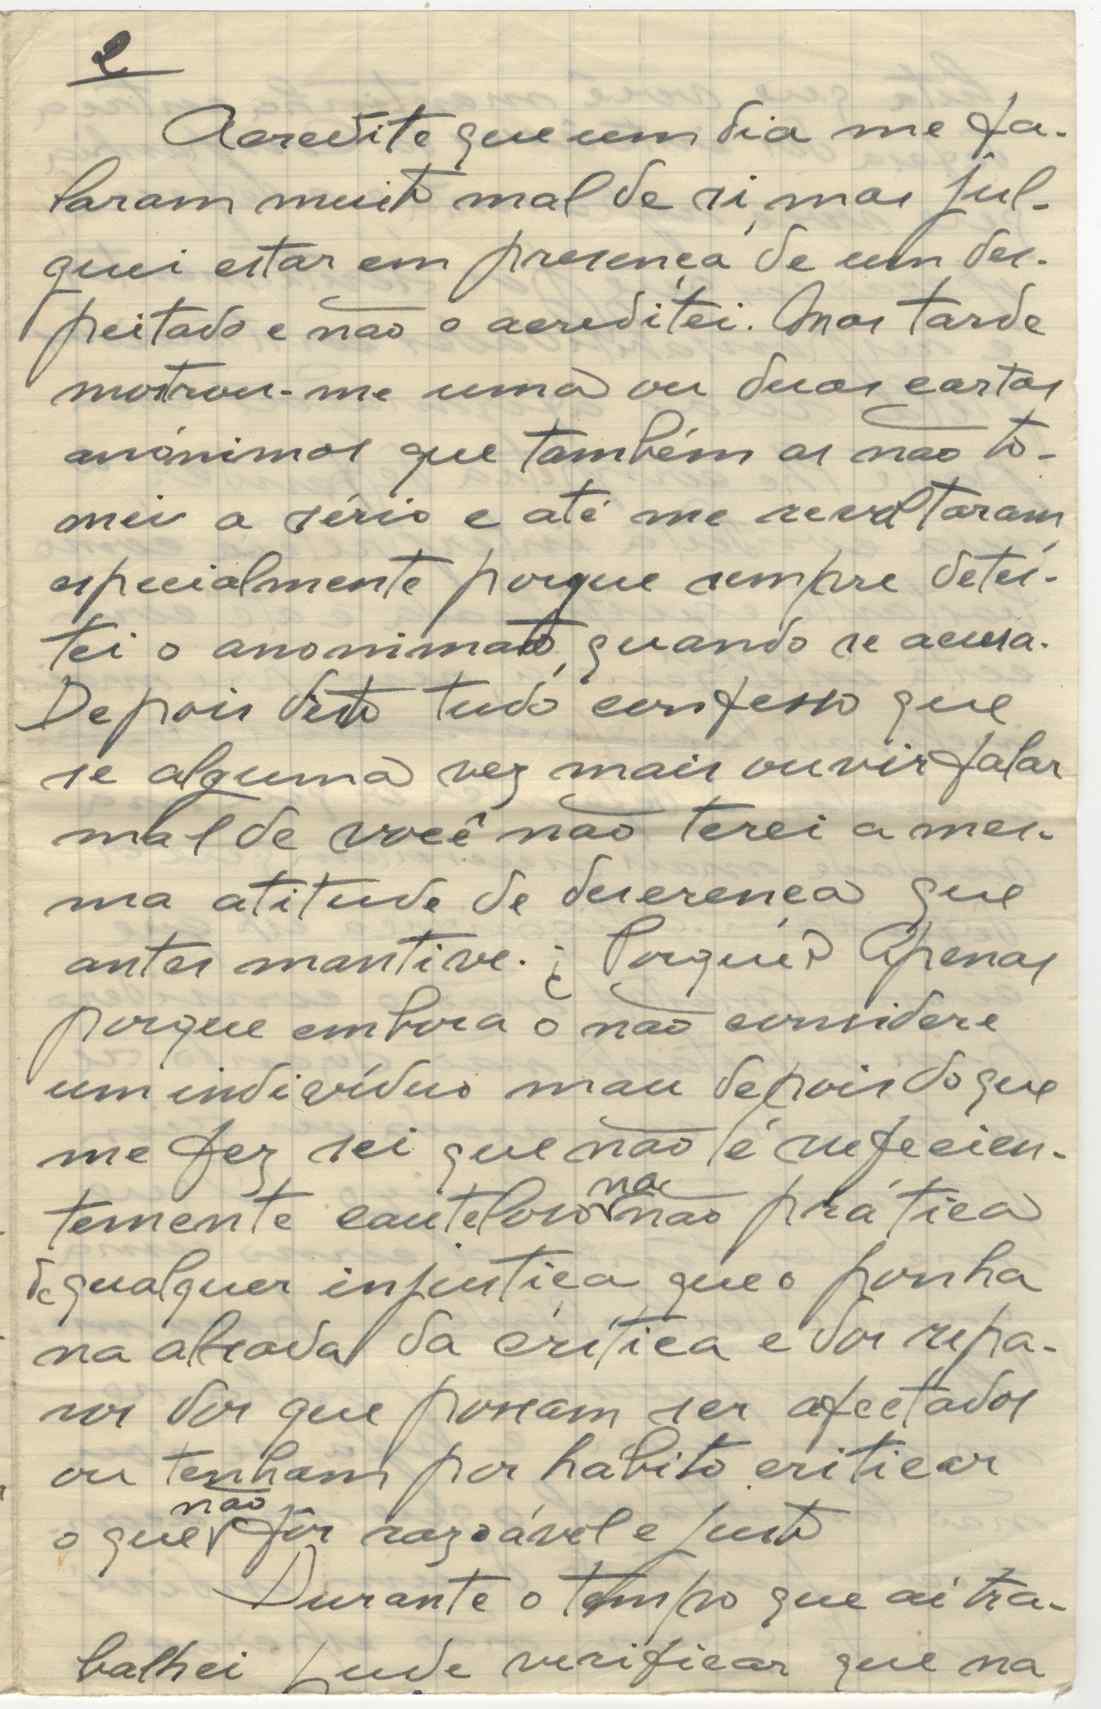 2
Acredite que um dia me fa-
laram muito mal de si, mas jul-
guei estar em presença de um des-
peitado e não o acreditei. Mas tarde
mostrou-me uma ou duas cartas
anónimas que também as não to-
mei a sério e até me revoltaram,
especialmente porque sempre detes-
tei o anonimato, quando se acusa.
Depois disto tudo confesso que
se alguma vez mais ouvir falar
mal de você não terei a mes-
ma atitude de descrença que
antes mantive. ¿ Porquê? Apenas
porque embora o não considere
um indivíduo mau depois do que
me fez sei que não é suficien-
temente cauteloso na não prática
de qualquer injustiça que o ponha
na alçada da crítica e dos repa-
ros dos que possam ser afectados
ou tenham por habito criticar
o que não fôr razoável e justo
Durante o tempo que aí tra-
balhei pude verificar que na